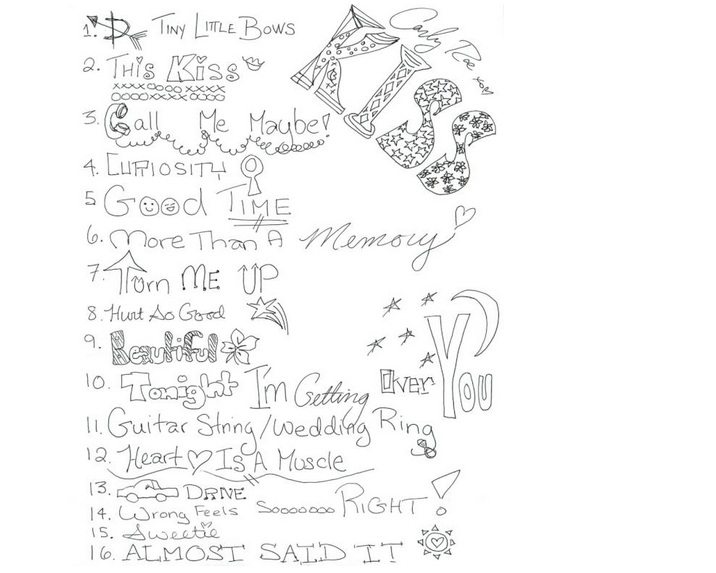 KISS
Carly Rae xo
1. Tiny Little Bows
2. This Kiss
xxxxxx xxxxx
3. Call Me Maybe!
4. Curiosity
5 Good Time
6. More Than A Memory
7. Turn Me Up
8. Hurt So Good
9. Beautiful
10. Tonight I'm Getting Over You
11. Guitar String/Wedding Ring
12. Heart Is A Muscle
13. Drive
14. Wrong Feels Sooooooo RIGHT!
15. Sweetie
16. ALMOST SAID IT